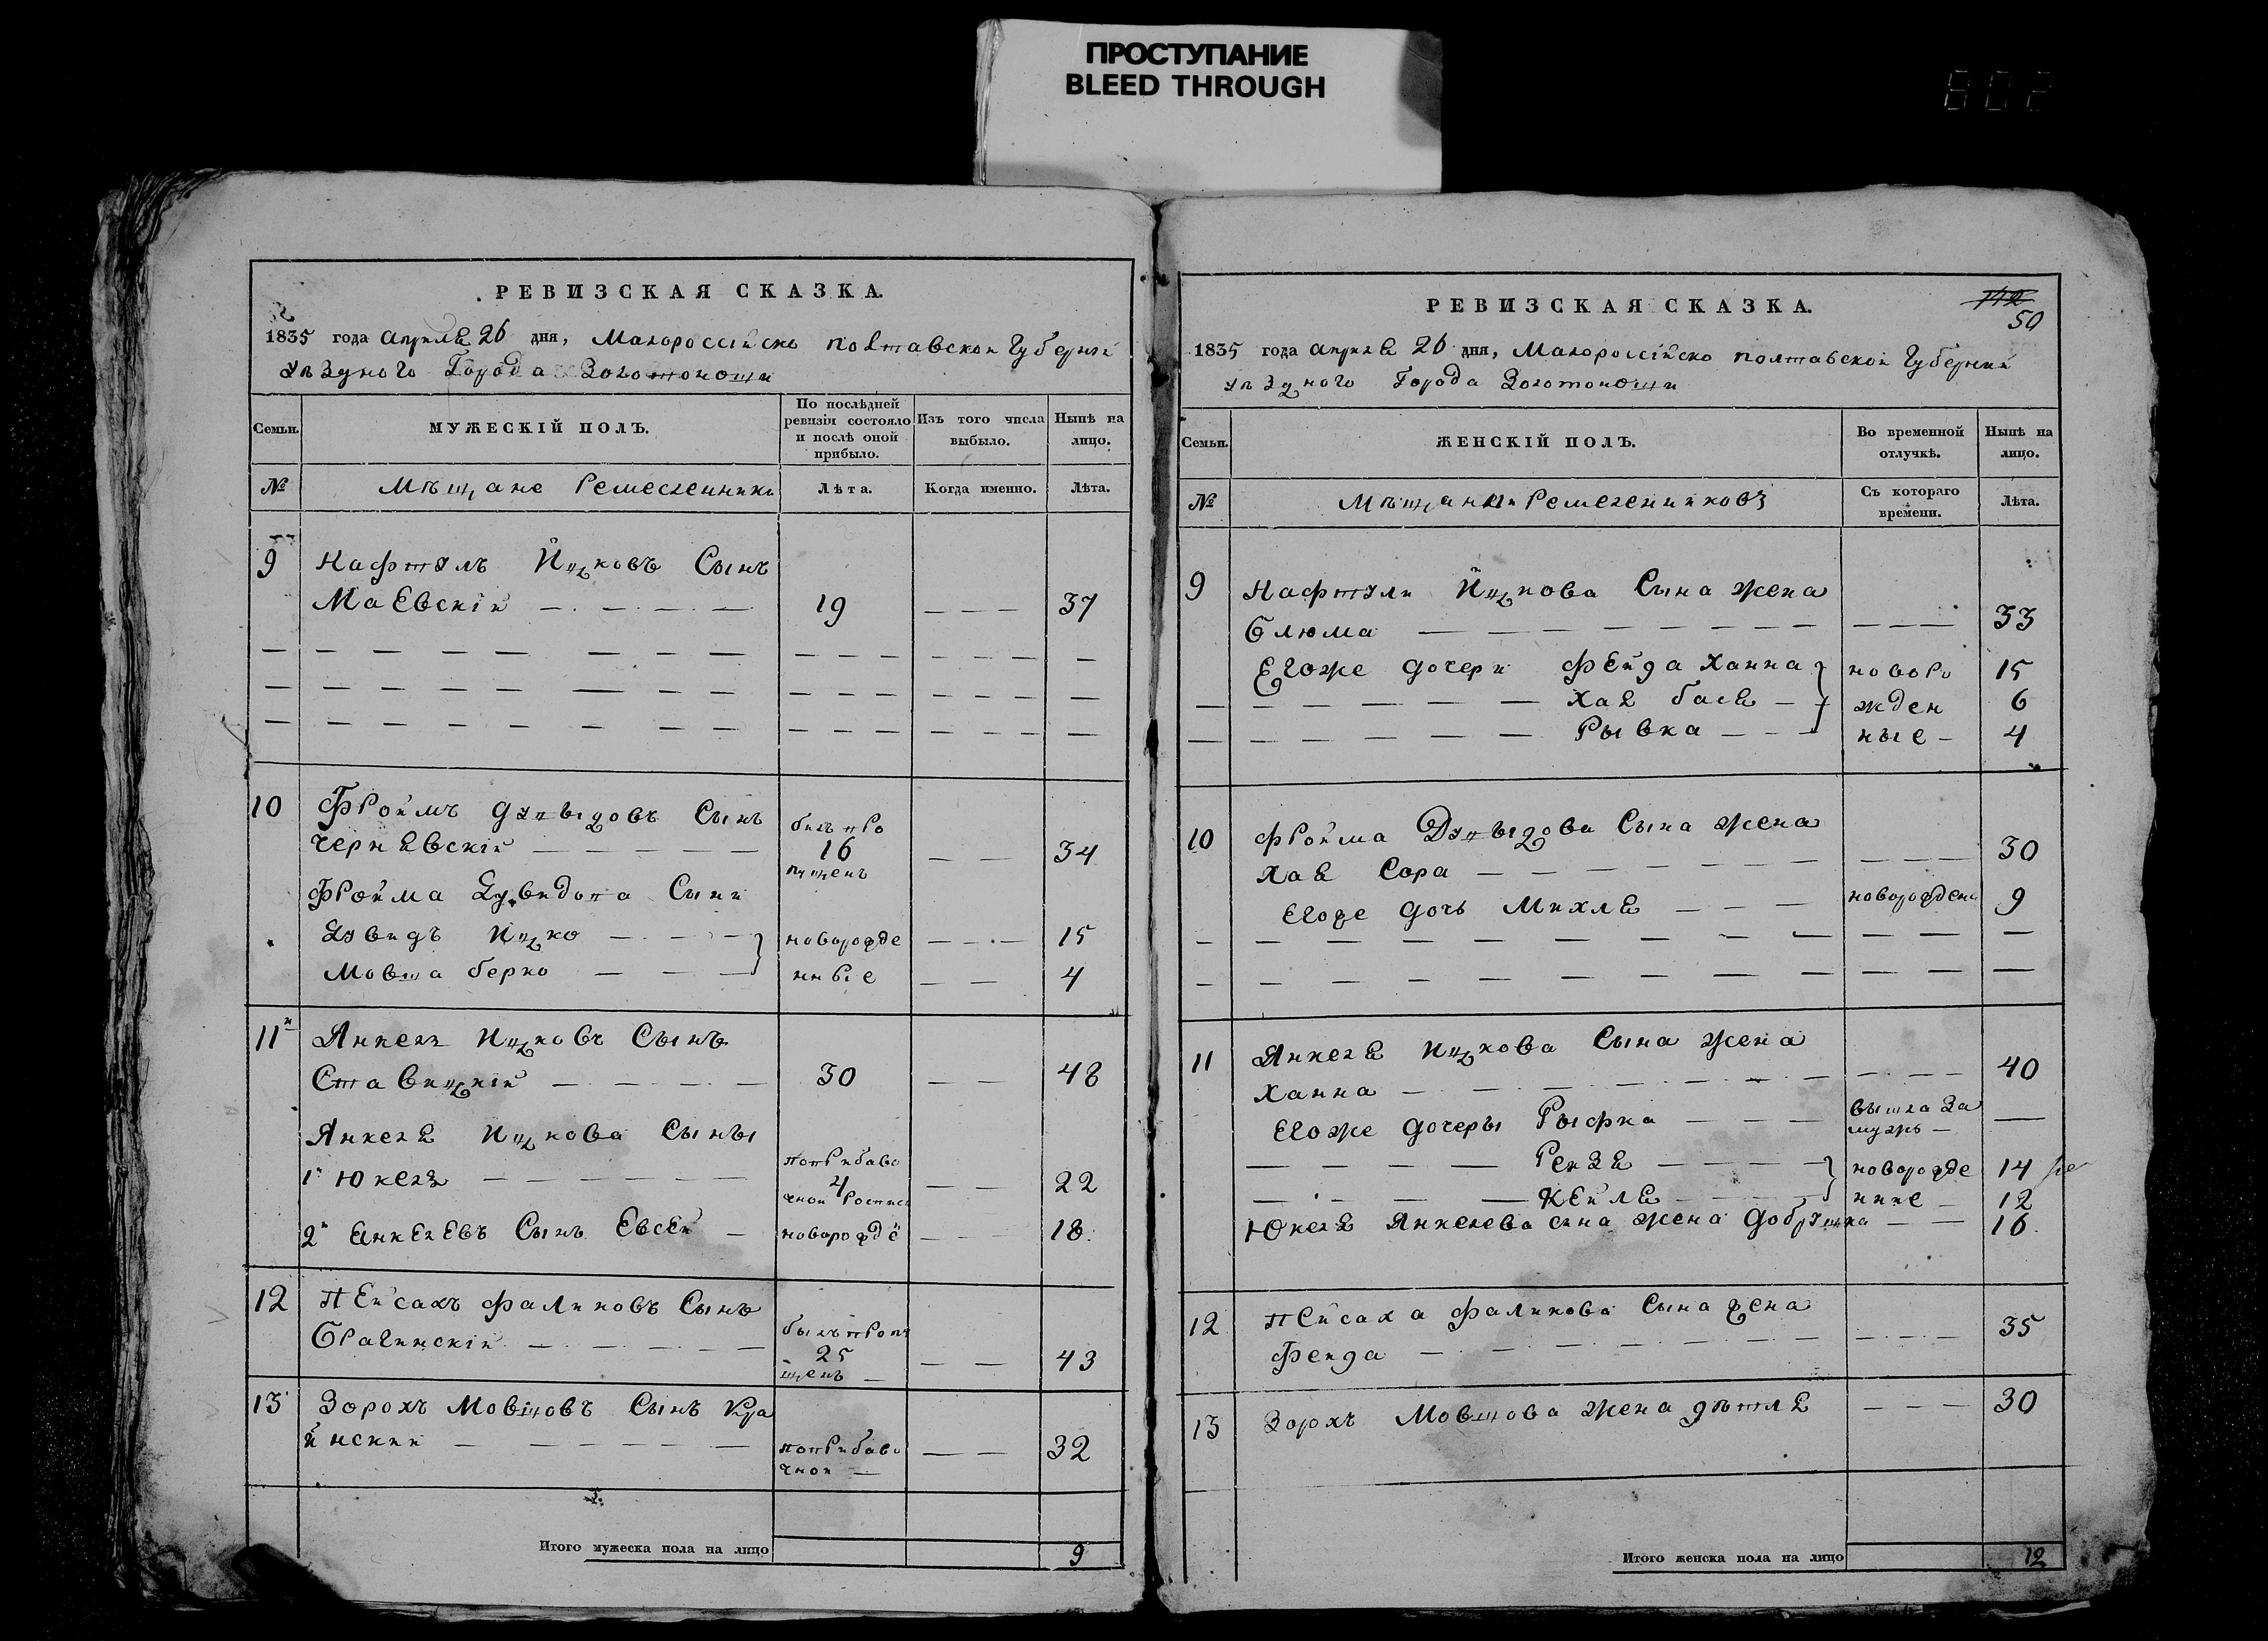 ПРОСТУПАНИЕ
BLEED THROUGH
802
РЕВИЗСКАЯ СКАЗКА.
1835 года апреля 26 дня, Малороссійско полтавской Губерніи
уѣзднаго Города Золотоноши
Семьи.
МУЖЕСКІЙ ПОЛЪ.
По послѣдней ревизіи состояло и послѣ оной прибыло.
Изъ того числа выбыло.
Нынѣ на лицо.
№
Мѣщане Ремесленники
Лѣта.
Когда именно.
Лѣта.
9 Нафтулъ Ицковъ Сынъ
Маевскій 19 37
10 Фроимъ Сынъ
Чернявскій 34
былъ про
16
пущенъ
Фройма Сыни
Дувидъ Ицко новорожде 15
Мовша берко нные 4
11 Янкель Ицковъ Сынъ
Ставицкій 30 48
Янкеля Ицкова Сыны
1й Юкель 22
поприбаво
4
чной Росписи
2й Янкелевъ Сынъ Евсей новорождё 18
12 Пейсахъ фаликовъ Сынъ
Брагинскій 43
былъ пропу
25
щенъ
13 Зорохъ Мовшовъ Сынъ Кра
инскии 32
поприбаво
чной
Итого мужеска пола на лицо 9
РЕВИЗСКАЯ СКАЗКА.
112
50
1835 года апреля 26 дня, Малороссійско полтавской Губерніи
уѣзднаго Города Золотоноши
Семьи.
ЖЕНСКІЙ ПОЛЪ.
Во временной отлучкѣ.
Нынѣ на лицо.
№
Мѣщанки Ремесленниковъ
Съ котораго времени.
Лѣта.
9 Нафтули Ицкова Сына жена
Блюма 33
Егоже дочери Фейда Ханна новоро 15
Хая бася жден 6
Рывка ные 4
10 Фройма Сына жена
Хая Сора 30
Егоже дочь Михля новорождена 9
11 Янкеля Ицкова Сына жена
Ханна 40
Егоже дочеры Рыфка вышла за мужъ
Рейзя новорожде 14
Кейля нные 12
Юкеля Янкелева сина жена добрушка 16
12 Пейсаха фаликова Сына жена
Фейда 35
13 Зорохъ Мовшова жена дѣтля 30
Итого женска пола на лицо 12